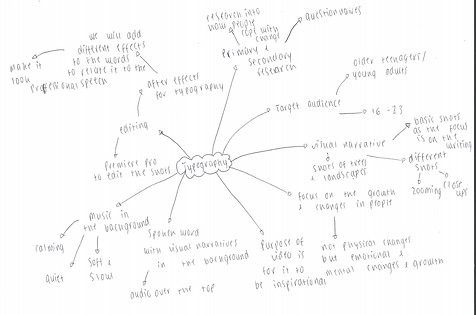 research into
how people
cope with
change
questionnaires
Primary &
secondary
research
we will add
different effects
to the words
to relate it to the
speech
make it
look
professional
after effects
for typography
older teenagers/
young adults
Target audience
16-23
editing
premiere pro
to edit the shots
Typography
visual narrative
shots of trees
& landscapes
basic shots
as the focus
is on the
writing
different
shots
zooming
close
ups
focus on the growth
& changes in people
not physical changes
but emotional &
mental changes & growth
music in
the background
calming
quiet
soft &
slow
spoken word
with visual narratives
in the background
audio over the top
Purpose of
video is
for it to
be inspirational